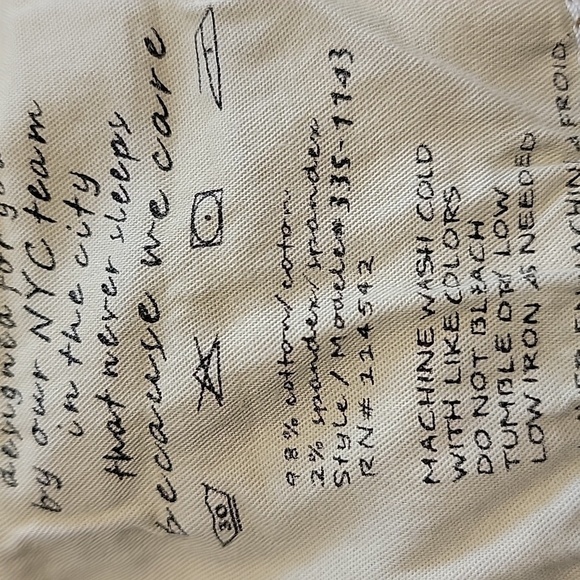 designed for you
by our NYC team
in the city
that never sleeps
because we care
30
98% cotton/coton
2% spandex/spandex
Style / Modele# 335-1743
RN# 114542
MACHINE WASH COLD
WITH LIKE COLORS
DO NOT BLEACH
TUMBLE DRY LOW
LOW IRON AS NEEDED
MACHINE FROID